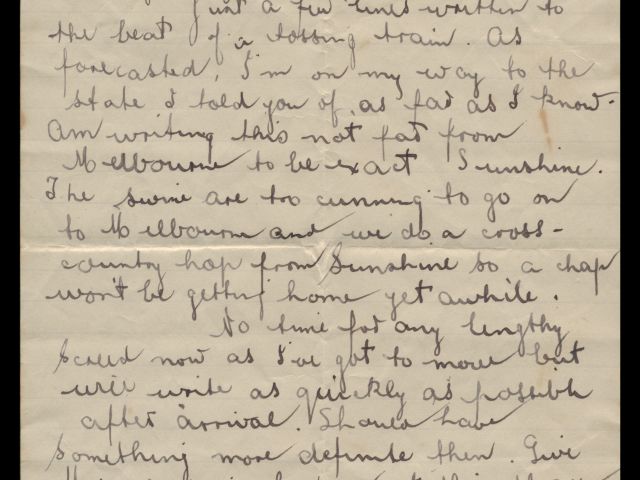 Just a few lines written to
the beat of a tossing train. As
forecasted, I'm on my way to the
state I told you of, as far as I know.
Am writing this not far from
Melbourne to be exact Sunshine.
The swine are too cunning to go on
to Melbourne and we do a cross-
country hop from Sunshine so a chap
won't be getting home yet awhile.
No time for any lengthy
screed now as I've got to move but
will write as quickly as possible
after arrival. Should have
something more definite then. Give